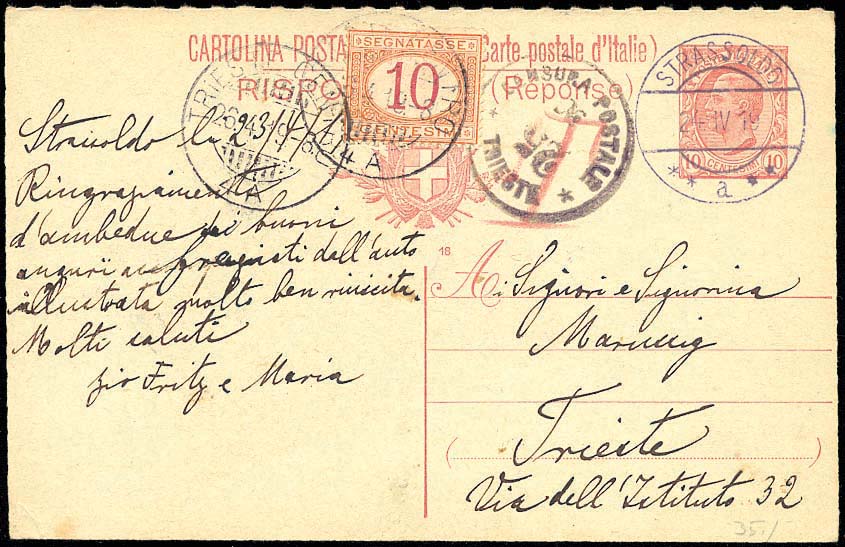 CARTOLINA POSTA (Carte postale d'Italie)
RISPO (Réponse)
SEGNATASSE
10
CENTESIMI
TRIESTE
A
4 A
CENSURA POSTALE
TRIESTE
T
STRASSOLDO
24 IV 19
a
10 CENTESIMI 10
18
Strassoldo li 23/IV 19
Ringraziamen
d'ambedue buoni
auguri dell'auto
illustrata molto ben riuscita.
Molti saluti
zio Fritz e Maria
Ai Signori e Signorina
Marussig
Trieste
Via dell'Istituto 32
35.-/